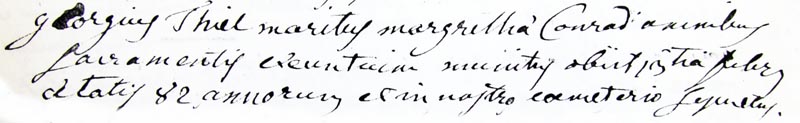 georgius Thiel maritus margretha Conrad omnibus
sacramentis exeuntium munitus obiit 13tia febry
ætatis 82 annorum et in nostro cœmeterio sepultus.